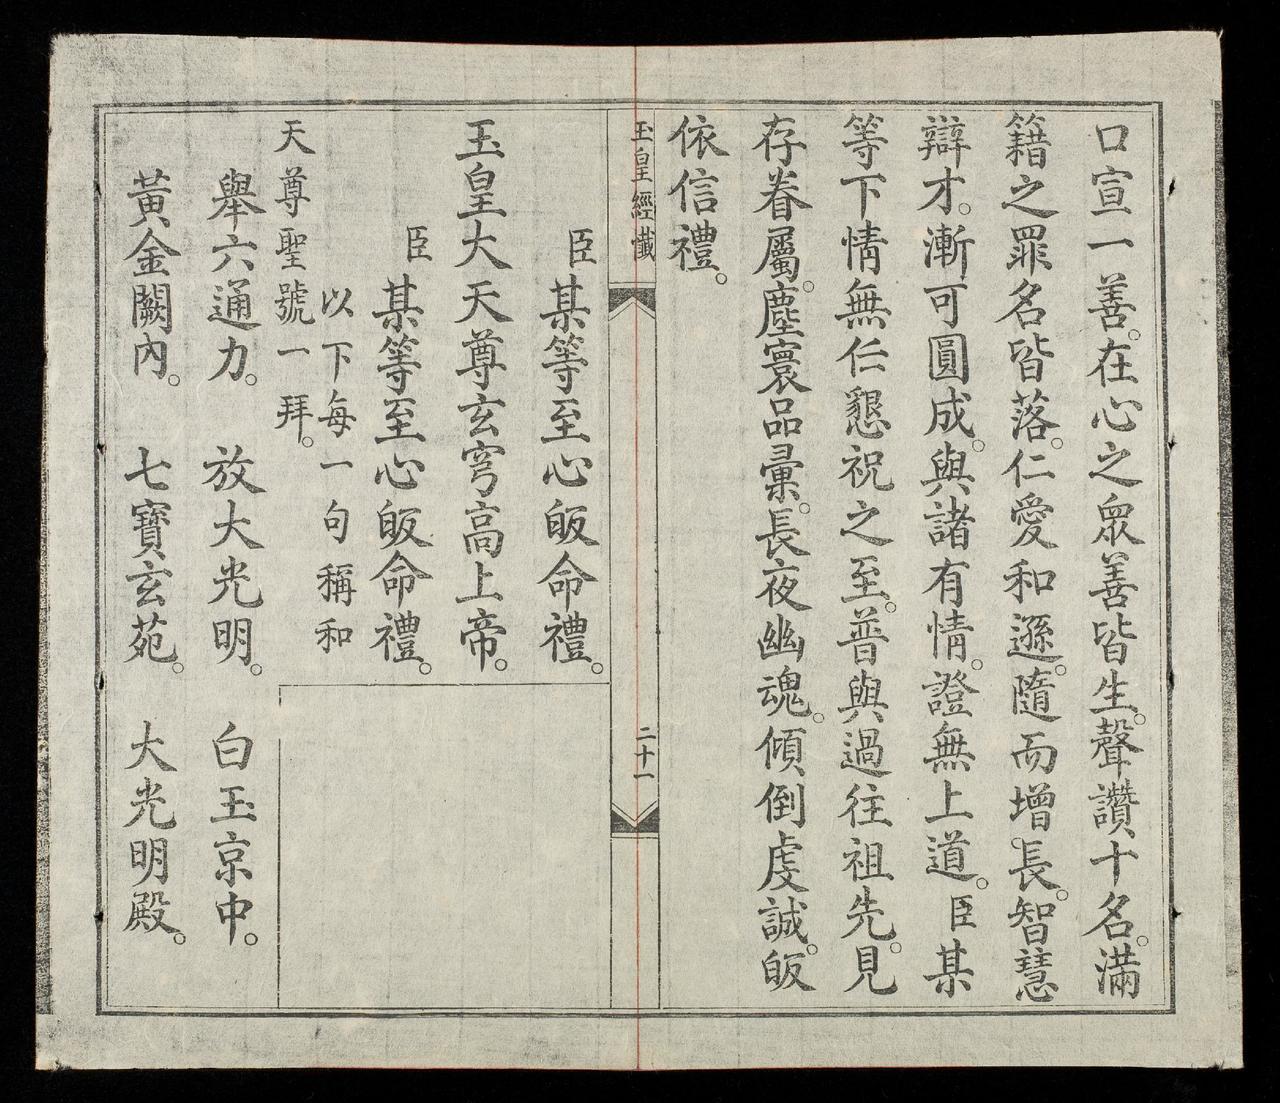 口宣一善。在心之眾善皆生。聲讚十名。滿
籍之罪名皆落。仁愛和遜。隨而增長。智慧
辯才。漸可圓成。與諸有情。證無上道。臣某
等下情無任懇祝之至。普與過往祖先。見
存眷屬。塵寰品彙。長夜幽魂。傾倒虔誠。皈
依信禮。
玉皇經懺
二十一
臣某等至心皈命禮。
玉皇大天尊玄穹高上帝。
臣某等至心皈命禮。
以下每一句稱和
天尊聖號一拜。
舉六通力。 放大光明。 白玉京中。
黃金闕內。 七寶玄苑。 大光明殿。